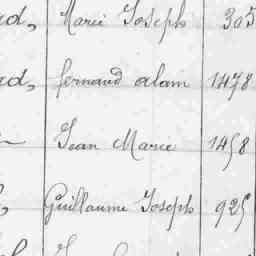 Marie Joseph 305
fernand alain 1478
Jean Marie 1458
Guillaume Joseph 925